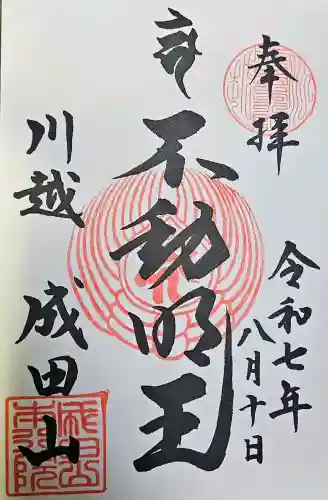 奉拝
令和七年
八月十日
不動明王
川越
成田山